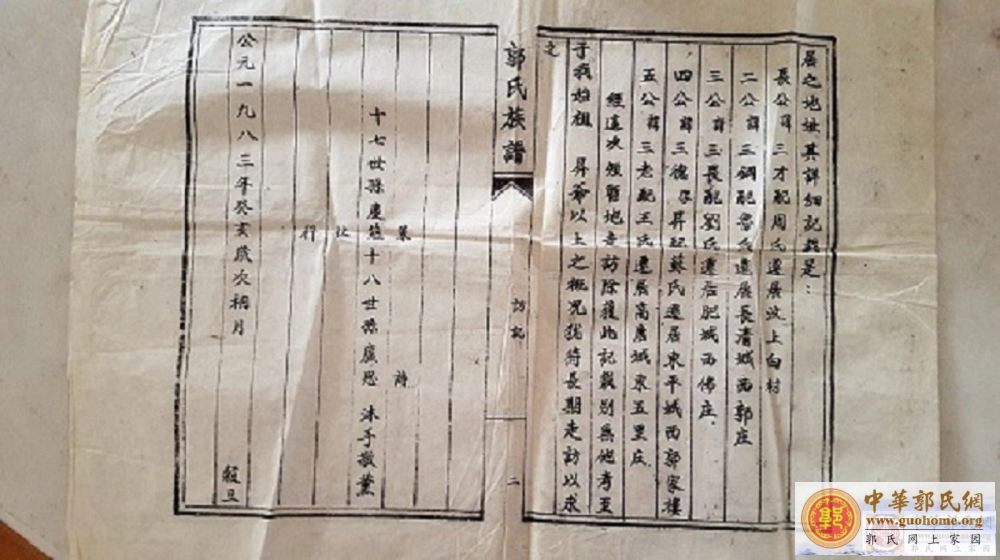 居之地址其詳細記錄是：
長公諱三才配周氏遷居汶上白村
二公諱三綱配魯氏遷居長清城西郭庄
三公諱三畏配劉氏遷居肥城西佛庄
四公諱三德字昇配蘇氏遷居東平城西郭家樓
五公諱三老配王氏遷居高唐城東五里庄
經這次短暫地走訪除獲此記載别無他考至
于我始祖 昇爺以上之概况猶待長期走訪以求
之
郭氏族譜
訪記
二
詩
十七世孫慶 十八世孫廣思 沐手敬薰
行
公元一九八三年癸亥歲次桐月 穀旦
中華郭氏網
www.guohome.org
郭氏网上家园